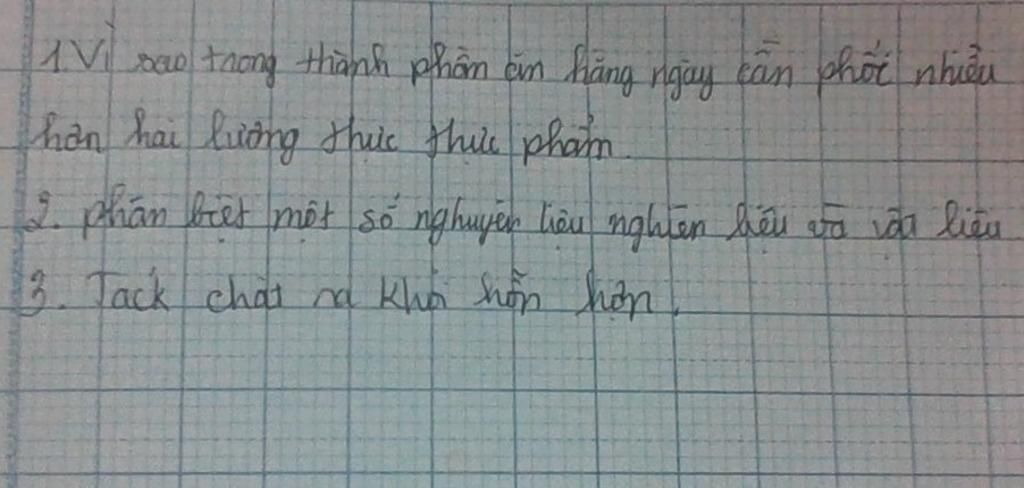 1. Vì sao trong thành phần ăn hằng ngày cần phối nhiều
hơn hai lương thực thực phẩm.
2. phân biệt một số nghuyên liệu nghiên liệu và vật liệu
3. Tách chất ra khỏi hỗn hợp.